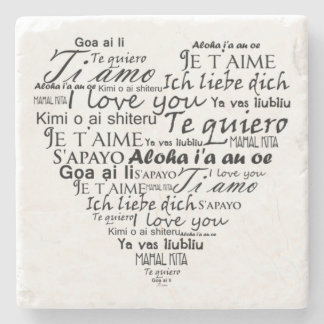 Goa ai li Aloha i'a au oe
Te quiero JE T'AIME
Ti amo Ich liebe dich
Kimi o ai shiteru
MAHAL KITA I love you Ya vas liubliu
Kimi o ai shiteru Te quiero
JE T'AIME Ya vas liubliu
S'APAYO Aloha i'a au oe
Goa ai li S'APAYO I love you
JE T'AIME MAHAL KITA Ti amo
Ich liebe dich S'APAYO
Te quiero I love you
Kimi o ai shiteru Aloha i'a au oe
Ya vas liubliu
MAHAL KITA
Te quiero
Goa ai li